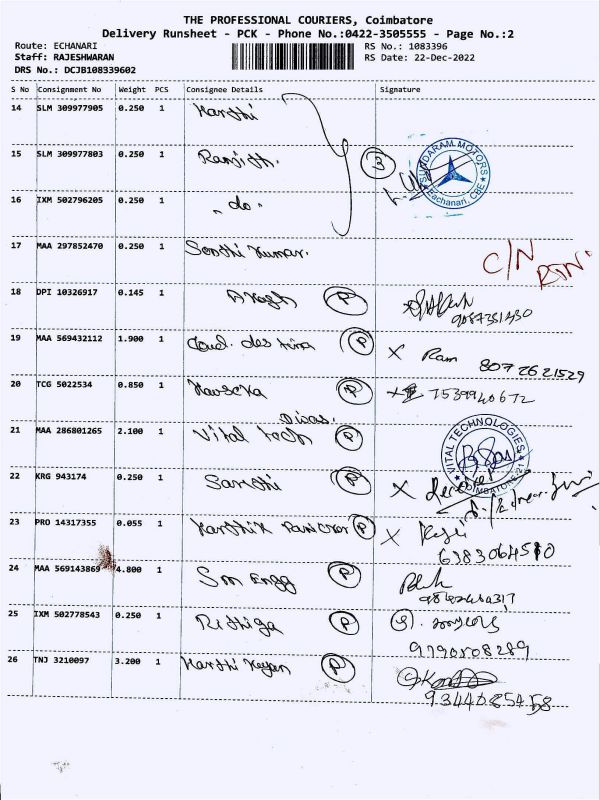 THE PROFESSIONAL COURIERS, Coimbatore
Delivery Runsheet - PCK - Phone No.:0422-3505555 - Page No.:2
Route: ECHANARI RS No.: 1083396
Staff: RAJESHWARAN RS Date: 22-Dec-2022
DRS No.: DCJB108339602
S No Consignment No Weight PCS Consignee Details Signature
14 SLM 309977905 0.250 1 Karthi
15 SLM 309977803 0.250 1 Ranjith. 3 SUNDARAM MOTORS Eachanari, CBE
16 IXM 502796205 0.250 1 "do"
17 MAA 297852470 0.250 1 Senthi Kumar. C/N RTN.
18 DPI 10326917 0.145 1 P
19 MAA 569432112 1.900 1 P X Ram 8072621529
20 TCG 5022534 0.850 1 P 7539940672
21 MAA 286801265 2.100 1 Vital tech P VITAL TECHNOLOGIES COIMBATORE-21
22 KRG 943174 0.250 1 P X
23 PRO 14317355 0.055 1 Karthik P X 6383064510
24 MAA 569143869 4.800 1 Sm Engg P
25 IXM 502778543 0.250 1 Rithiga P 9790508289
26 TNJ 3210097 3.200 1 Karthi Keyan P